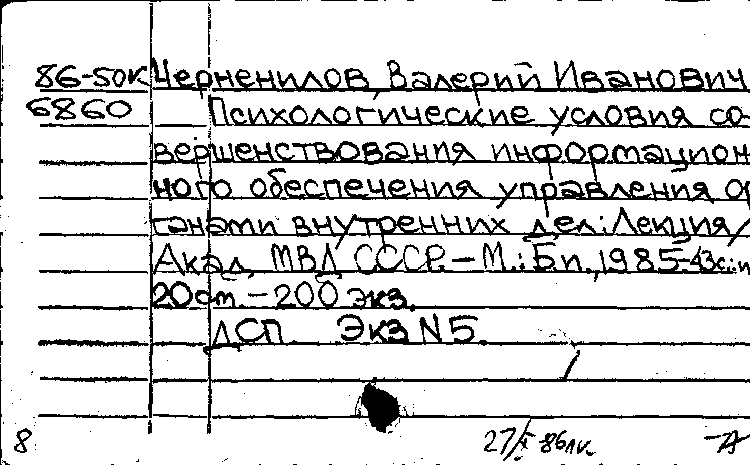 86-50к Черненилов, Валерий Иванович
6860 Психологические условия со-
вершенствования информацион
ного обеспечения управления ор
ганами внутренних дел: Лекция/
Акад. МВД СССР. – М.: Б.и., 1985.-43с.:и
20см. – 200 экз.
ДСП. Экз N5.
8 27/X 86